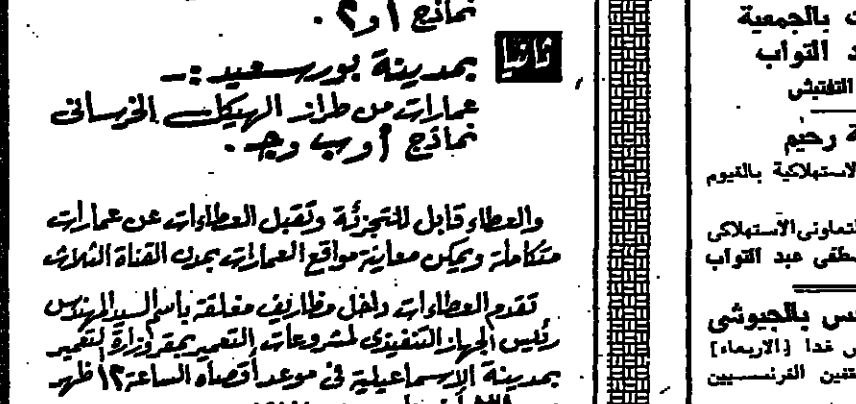 نماذج أ و ٢ .
ثانيا
بمدينة بورسعيد :-
عمارات من طراز الهيكل الخرسانى
نماذج أ و ب و ج .
والعطاء قابل للتجزئة وتقبل العطاءات عن عمارات
متكاملة ويمكن معاينة مواقع العمارات بمدن القناة الثلاث
تقدم العطاءات داخل مظاريف مغلقة باسم السيد المهندس
رئيس الجهاز التنفيذى لمشروعات التعمير بمقر وزارة التعمير
بمدينة الإسماعيلية فى موعد أقصاه الساعة ١٢ ظهر
ت بالجمعية
د التواب
التفتيشى
ة رحيم
الاستهلاكية بالفيوم
التعاونى الاستهلاكى
مصطفى عبد التواب
س بالجيوشى
غدا [الاربعاء]
الفرنسيين